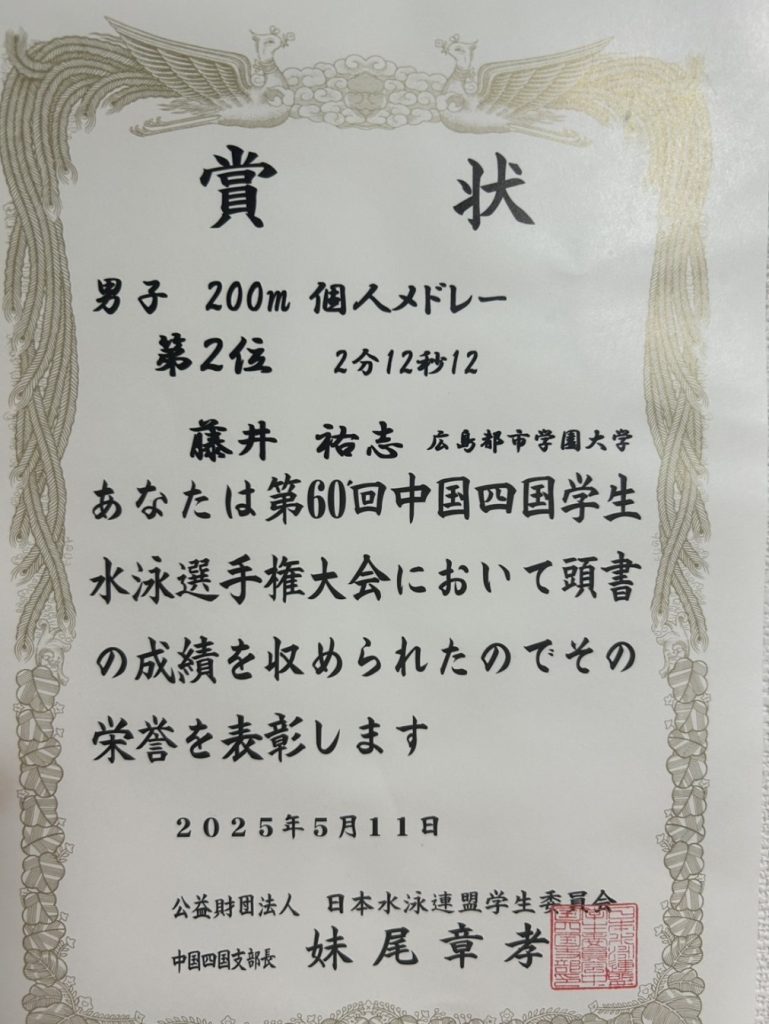 賞 状
男子 200m 個人メドレー
第2位 2分12秒12
藤井 祐志 広島都市学園大学
あなたは第60回中国四国学生
水泳選手権大会において頭書
の成績を収められたのでその
栄誉を表彰します
2025年5月11日
公益財団法人 日本水泳連盟学生委員会
中国四国支部長 妹尾章孝